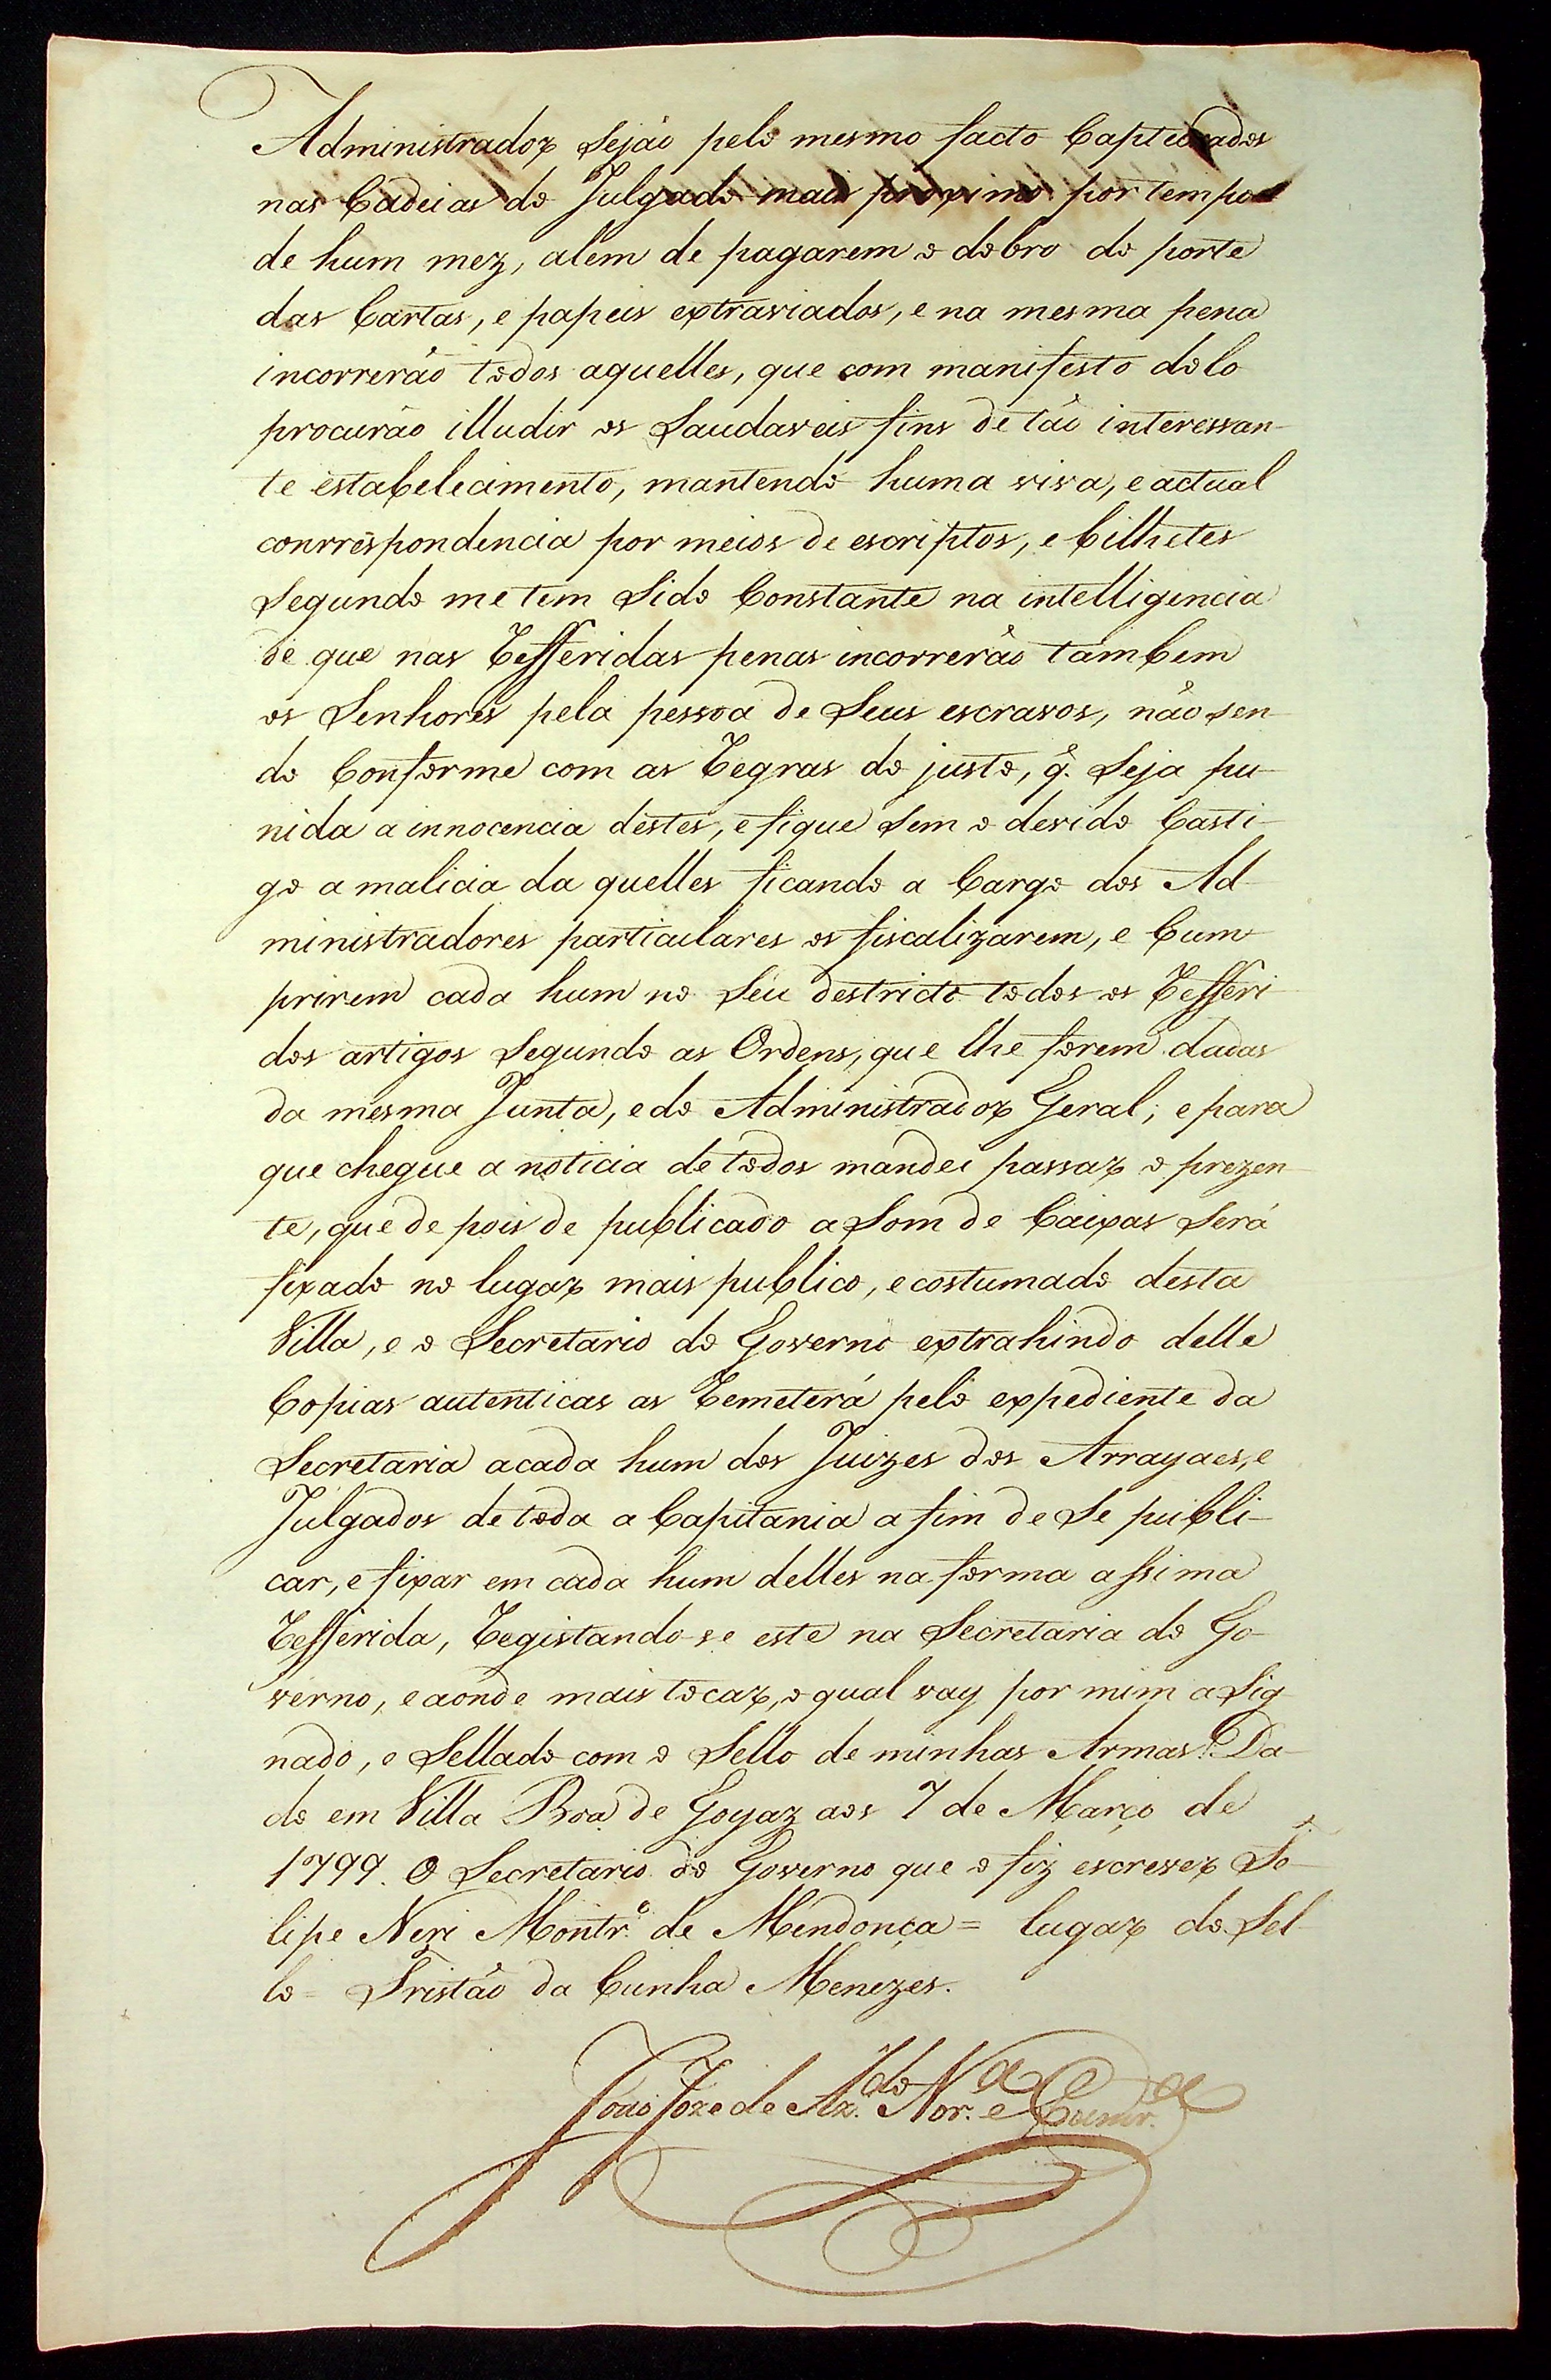 Administrador Sejão pelo mesmo facto Capturados
nas Cadeias do Julgado mais proximo por tempo
de hum mez, alem de pagarem o dobro do porte
das Cartas, e papeis extraviados, e na mesma pena
incorrerão todos aquelles, que com manifesto dolo
procurão illudir os Saudaveis fins de tão interessan-
te estabelecimento, mantendo huma viva, e actual
conrrespondencia por meios de escriptos, e bilhetes
Segundo me tem Sido Constante na intelligencia
de que nas Refferidas penas incorrerão tambem
os Senhores pela pessoa de Seus escravos, não sen-
do Conforme com as Regras do justo, q̃. Seja pu-
nida a innocencia destes, e fique Sem o devido Casti-
go a malicia da quelles ficando a Cargo dos Ad-
ministradores particulares os fiscalizarem, e Cum-
prirem cada hum no Seu destricto todos os Refferi-
dos artigos Segundo as Ordens, que lhe forem dadas
da mesma Junta, e do Administrador Geral; e para
que chegue a noticia de todos mandei passar o prezen-
te, que de pois de publicado a Som de Caixas Será
fixado no lugar mais publico, e costumado desta
Villa, e o Secretario do Governo extrahindo delle
Copias autenticas as Remeterá pelo expediente da
Secretaria acada hum dos Juizes dos Arrayaes, e
Julgados de toda a Capitania a fim de Se publi-
car, e fixar em cada hum delles na forma assima
Refferida, Registando-se este na Secretaria do Go-
verno, e aonde mais tocar, o qual vay por mim aSig-
nado, e Sellado com o Sello de minhas Armas. Da-
do em Villa Boa de Goyaz aos 7 de Março de
1799. O Secretario do Governo que o fiz escrever
lipe Neri Montr.º de Mendonça = lugar do Sel-
lo = Tristão da Cunha Menezes.
João Joze de Az.do Nor.a e